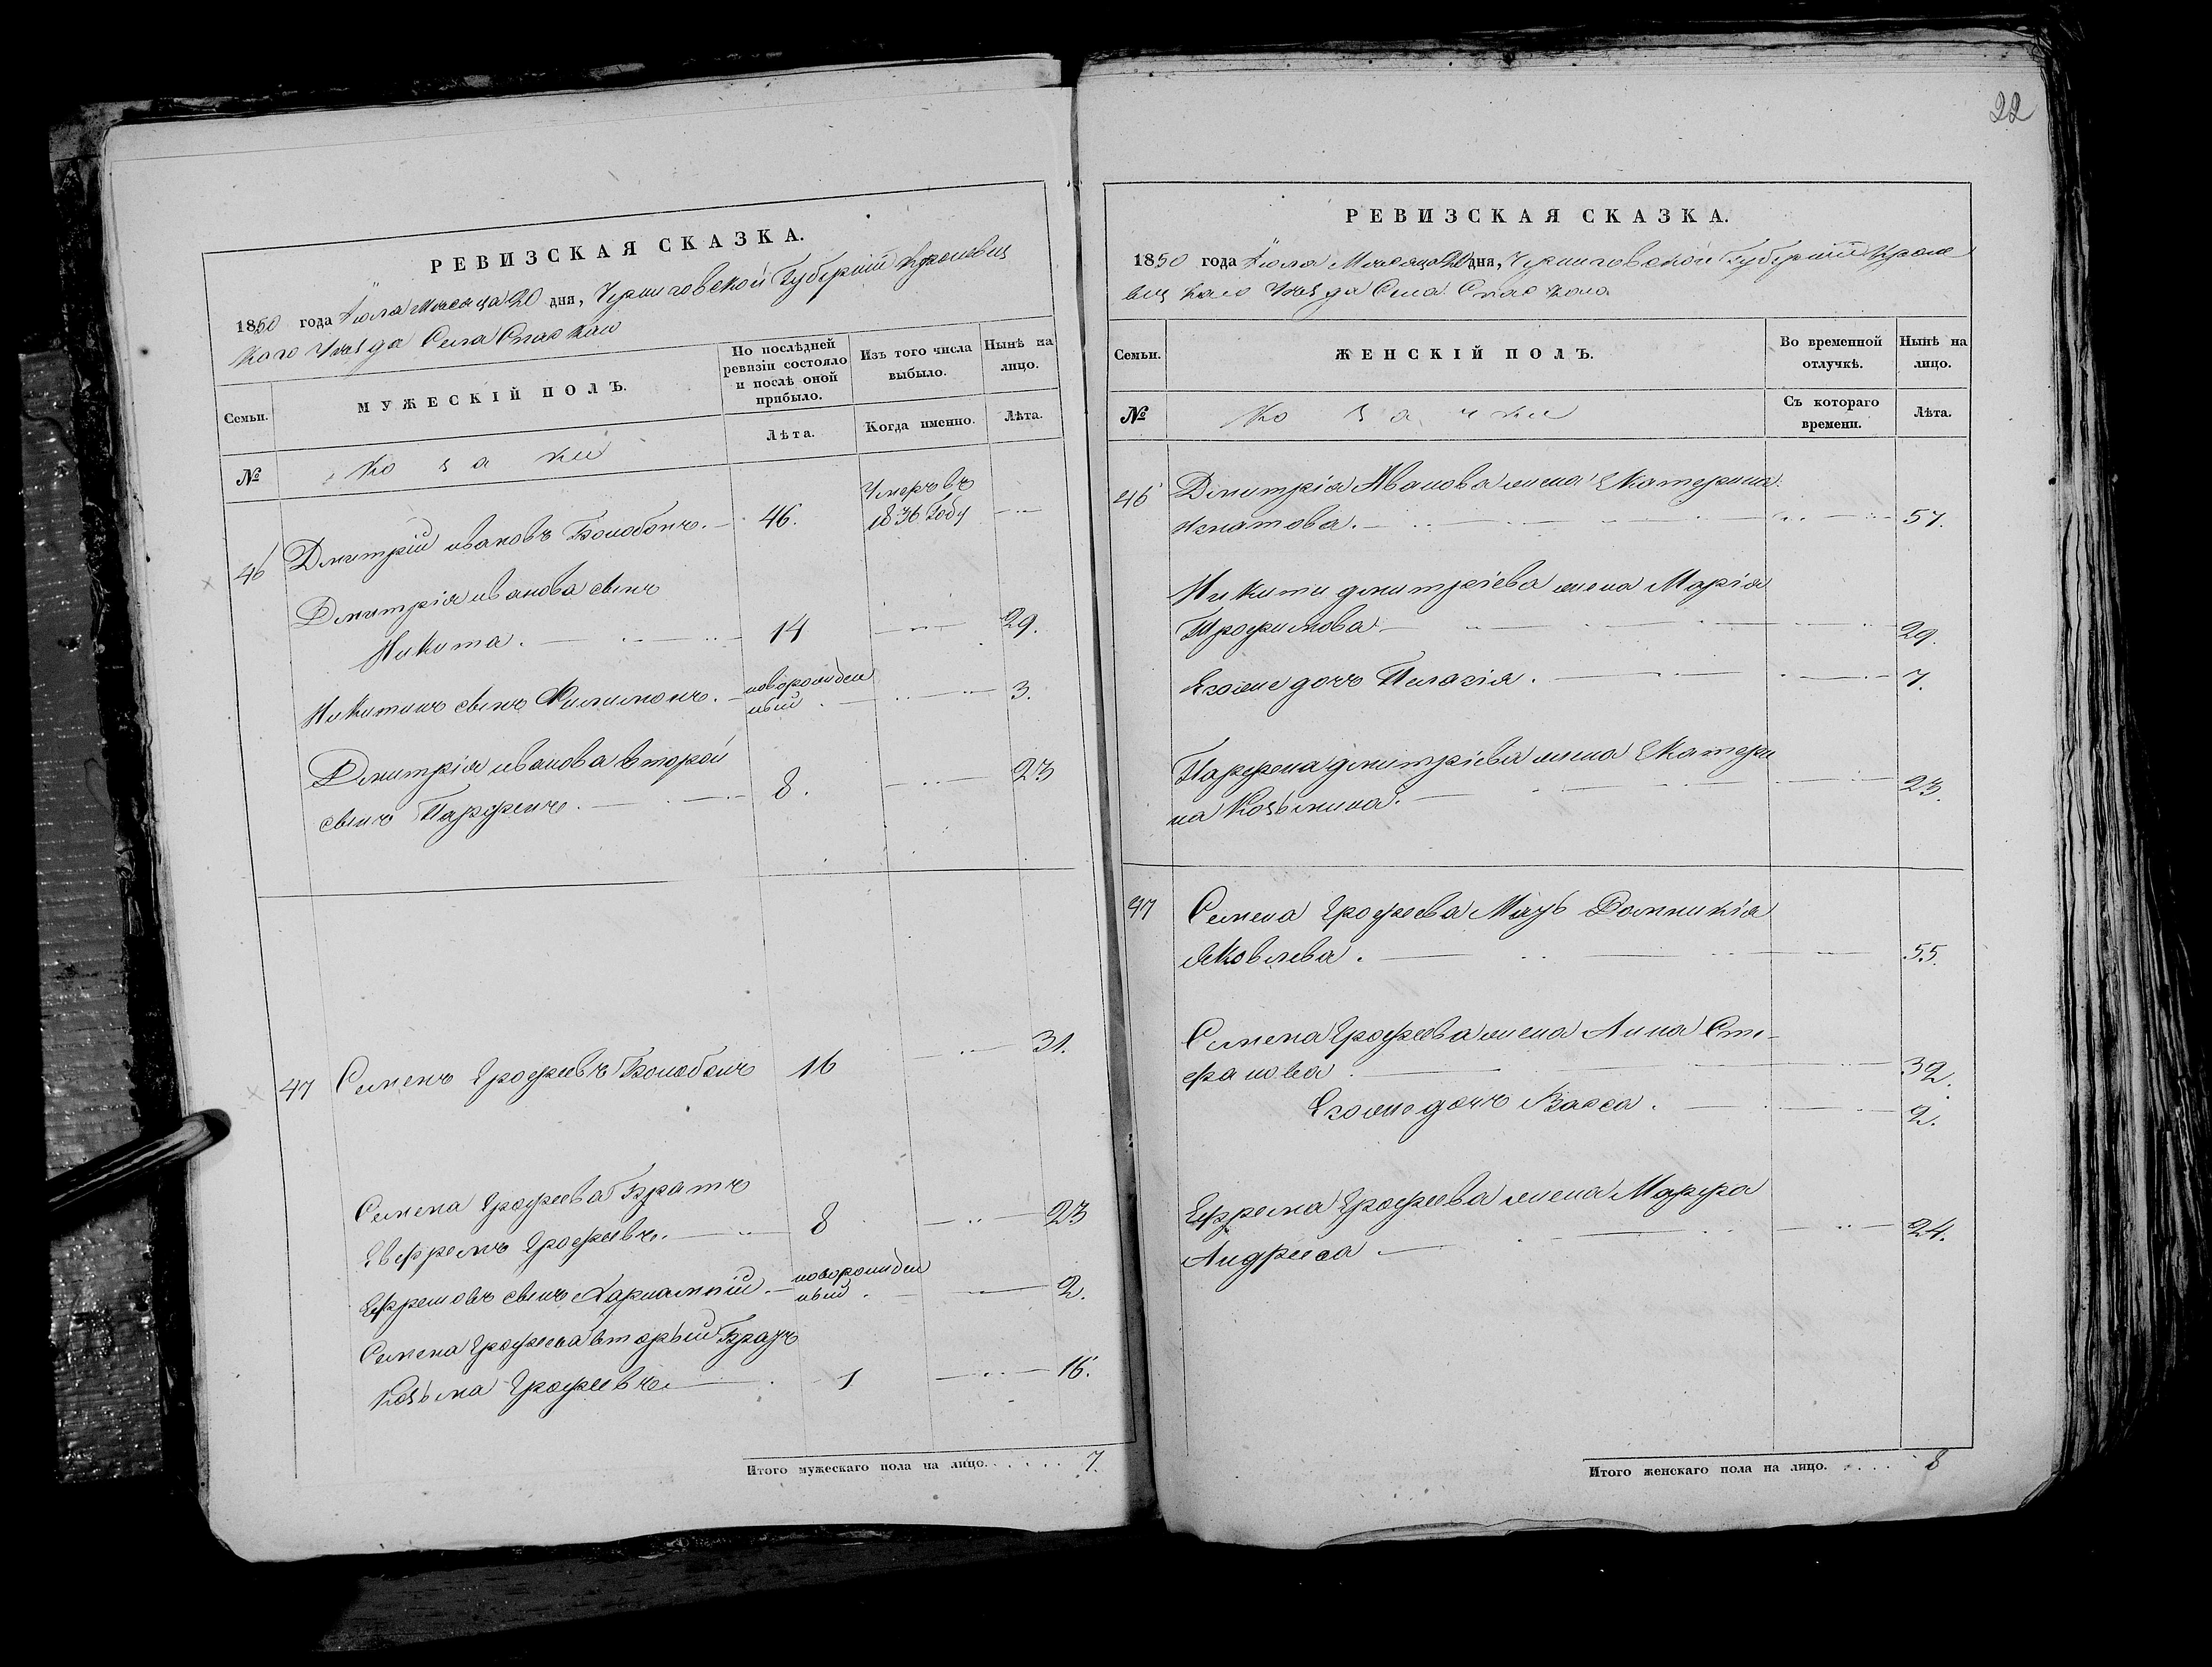 РЕВИЗСКАЯ СКАЗКА.
1850 года Іюля Мѣсяца 20 дня, Черниговской Губерніи Кролевец
каго Уѣзда Села Спаскаго
Семьи.
МУЖЕСКІЙ ПОЛЪ.
По послѣдней
ревизіи состояло
и послѣ оной
прибыло.
Изъ того числа
выбыло.
Нынѣ на
лицо.
№
Козаки
Лѣта.
Когда именно.
Лѣта.
46 Дмитрій Ивановъ Болобонъ. 46. Умеръ въ
1836 Году
Дмитрія Иванова сынъ
Никита. 14 29.
Никитинъ сынъ Филимонъ. новорожден
ный 3.
Дмитрія Иванова второй
сынъ Парфенъ. 8. 23
47 Семенъ Ерофеевъ Болобонъ 16 31.
Семена Ерофеева Братъ
Евфремъ Ерофеевъ. 8 23
Ефремовъ сынъ Харлампій. новорожден
ный. 2.
Семена Ерофеева вторый Братъ
Козьма Ерофеевъ. 1 16.
Итого мужескаго пола на лицо. . . . . . 7.
22
РЕВИЗСКАЯ СКАЗКА.
1850 года Іюля Мѣсяца 20 дня, Черниговской Губерніи Кроле
вец каго Уѣзда Села Спаскаго
Семьи.
ЖЕНСКІЙ ПОЛЪ.
Во временной
отлучкѣ.
Нынѣ на
лицо.
№
Козачки
Съ котораго
времени.
Лѣта.
46 Дмитрія Иванова жена Екатерина
Игнатова. 57.
Никити Дмитріева жена Марія
Трофимова 29.
Егоже дочь Пелагія. 7.
Парфена Дмитріева жена Екатери
на Козьмина. 23.
47 Семена Ерофеева Мать Домникія
Яковлева. 55.
Семена Ерофеева жена Анна Сте-
фанова 32.
Егоже дочь Васса. 2.
Ефрема Ерофеева жена Марфа
Андреева 24.
Итого женскаго пола на лицо. . . . . 8